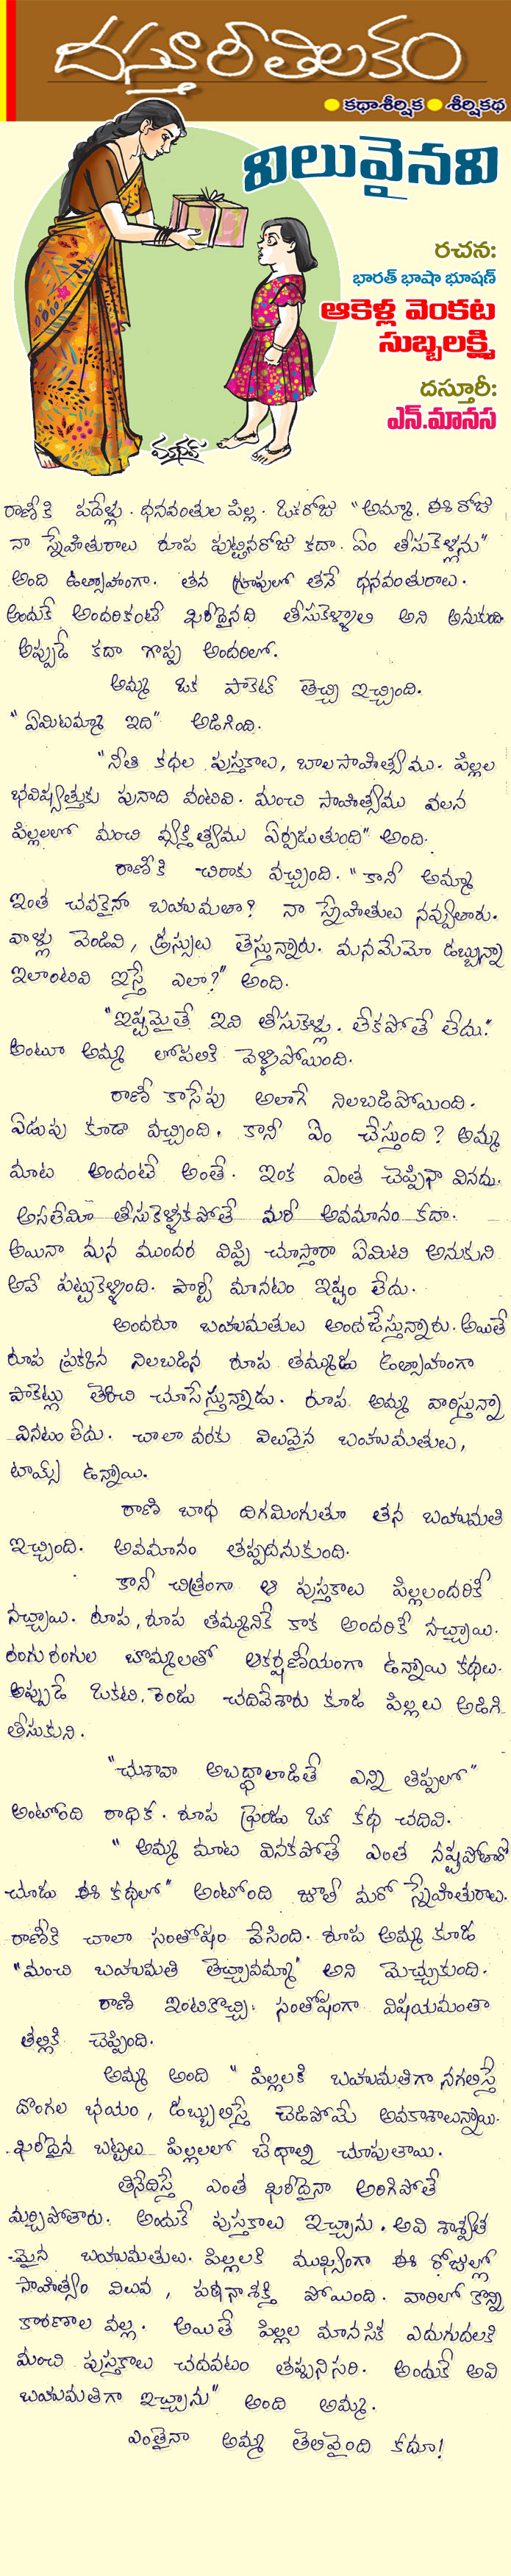 దస్తూరీతిలకం
కథాశీర్షిక శీర్షికథ
విలువైనవి
రచన:
భారత్ భాషా భూషణ్
ఆకెళ్ల వెంకట
సుబ్బలక్ష్మి
దస్తూరీ:
ఎన్.మానస
మాధవ్
రాణికి పదేళ్లు. ధనవంతుల పిల్ల. ఒకరోజు "అమ్మా, ఈ రోజు
నా స్నేహితురాలు రూప పుట్టినరోజు కదా. ఏం తీసుకెళ్లను"
అంది ఉత్సాహంగా. తన గ్రూపులో తనే ధనవంతురాలు.
అందుకే అందరికంటే ఖరీదైనది తీసుకెళ్ళాలి అని అనుకుంది.
అప్పుడే కదా గొప్ప అందరిలో.
అమ్మ ఒక పాకెట్ తెచ్చి ఇచ్చింది.
"ఏమిటమ్మా ఇది" అడిగింది.
"నీతి కథల పుస్తకాలు, బాల సాహిత్యము. పిల్లల
భవిష్యత్తుకు పునాది వంటివి. మంచి సాహిత్యము వలన
పిల్లలలో మంచి వ్యక్తిత్వము ఏర్పడుతుంది" అంది.
రాణికి చిరాకు వచ్చింది. "కానీ అమ్మా
ఇంత చవకైనా బహుమతా? నా స్నేహితులు నవ్వుతారు.
వాళ్లు వెండివి, డ్రస్సులు తెస్తున్నారు. మనమేమో డబ్బున్నా
ఇలాంటివి ఇస్తే ఎలా?" అంది.
"ఇష్టమైతే ఇవి తీసుకెళ్లు. లేకపోతే లేదు."
అంటూ అమ్మ లోపలికి వెళ్ళిపోయింది.
రాణి కాసేపు అలాగే నిలబడిపోయింది.
ఏడుపు కూడా వచ్చింది. కానీ ఏం చేస్తుంది? అమ్మ
మాట అందంటే అంతే. ఇంక ఎంత చెప్పినా వినదు.
అసలేమీ తీసుకెళ్ళకపోతే మరీ అవమానం కదా.
అయినా మన ముందర విప్పి చూస్తారా ఏమిటి అనుకుని
అవే పట్టుకెళ్ళింది. పార్టీ మానటం ఇష్టం లేదు.
అందరూ బహుమతులు అందజేస్తున్నారు. అయితే
రూప ప్రక్కన నిలబడిన రూప తమ్ముడు ఉత్సాహంగా
పాకెట్లు తెరిచి చూసేస్తున్నాడు. రూప అమ్మ వారిస్తున్నా
వినటం లేదు. చాలా వరకు విలువైన బహుమతులు,
టాయ్స్ ఉన్నాయి.
రాణి బాధ దిగమింగుతూ తన బహుమతి
ఇచ్చింది. అవమానం తప్పదనుకుంది.
కానీ చిత్రంగా ఆ పుస్తకాలు పిల్లలందరికీ
నచ్చాయి. రూప, రూప తమ్మునికే కాక అందరికీ నచ్చాయి.
రంగు రంగుల బొమ్మలతో ఆకర్షణీయంగా ఉన్నాయి కథలు.
అప్పుడే ఒకటి, రెండు చదివేశారు కూడ పిల్లలు అడిగి
తీసుకుని.
"చుశావా అబద్ధాలాడితే ఎన్ని తిప్పలో"
అంటోంది రాధిక. రూప ఫ్రెండు ఒక కథ చదివి.
"అమ్మ మాట వినకపోతే ఎంత నష్టపోతారో
చూడు ఈ కథలో" అంటోంది జూతీ మరో స్నేహితురాలు.
రాణికి చాలా సంతోషం వేసింది. రూప అమ్మ కూడ
"మంచి బహుమతి తెచ్చావమ్మా" అని మెచ్చుకుంది.
రాణి ఇంటికొచ్చి సంతోషంగా విషయమంతా
తల్లికి చెప్పింది.
అమ్మ అంది "పిల్లలకి బహుమతిగా నగలిస్తే
దొంగల భయం, డబ్బులిస్తే చెడిపోయే అవకాశాలున్నాయి.
ఖరీదైన బట్టలు పిల్లలలో బేధాల్ని చూపుతాయి.
తినేదిస్తే ఎంత ఖరీదైనా అరిగిపోతే
మర్చిపోతారు. అందుకే పుస్తకాలు ఇచ్చాను. అవి శాశ్వత
మైన బహుమతులు. పిల్లలకి ముఖ్యంగా ఈ రోజుల్లో
సాహిత్యం విలువ, పఠనాశక్తి పోయింది. వారిలో కొన్ని
కారణాల వల్ల. అయితే పిల్లల మానసిక ఎదుగుదలకి
మంచి పుస్తకాలు చదవటం తప్పనిసరి. అందుకే అవి
బహుమతిగా ఇచ్చాను" అంది అమ్మ.
ఎంతైనా అమ్మ తెలివైంది కదూ!